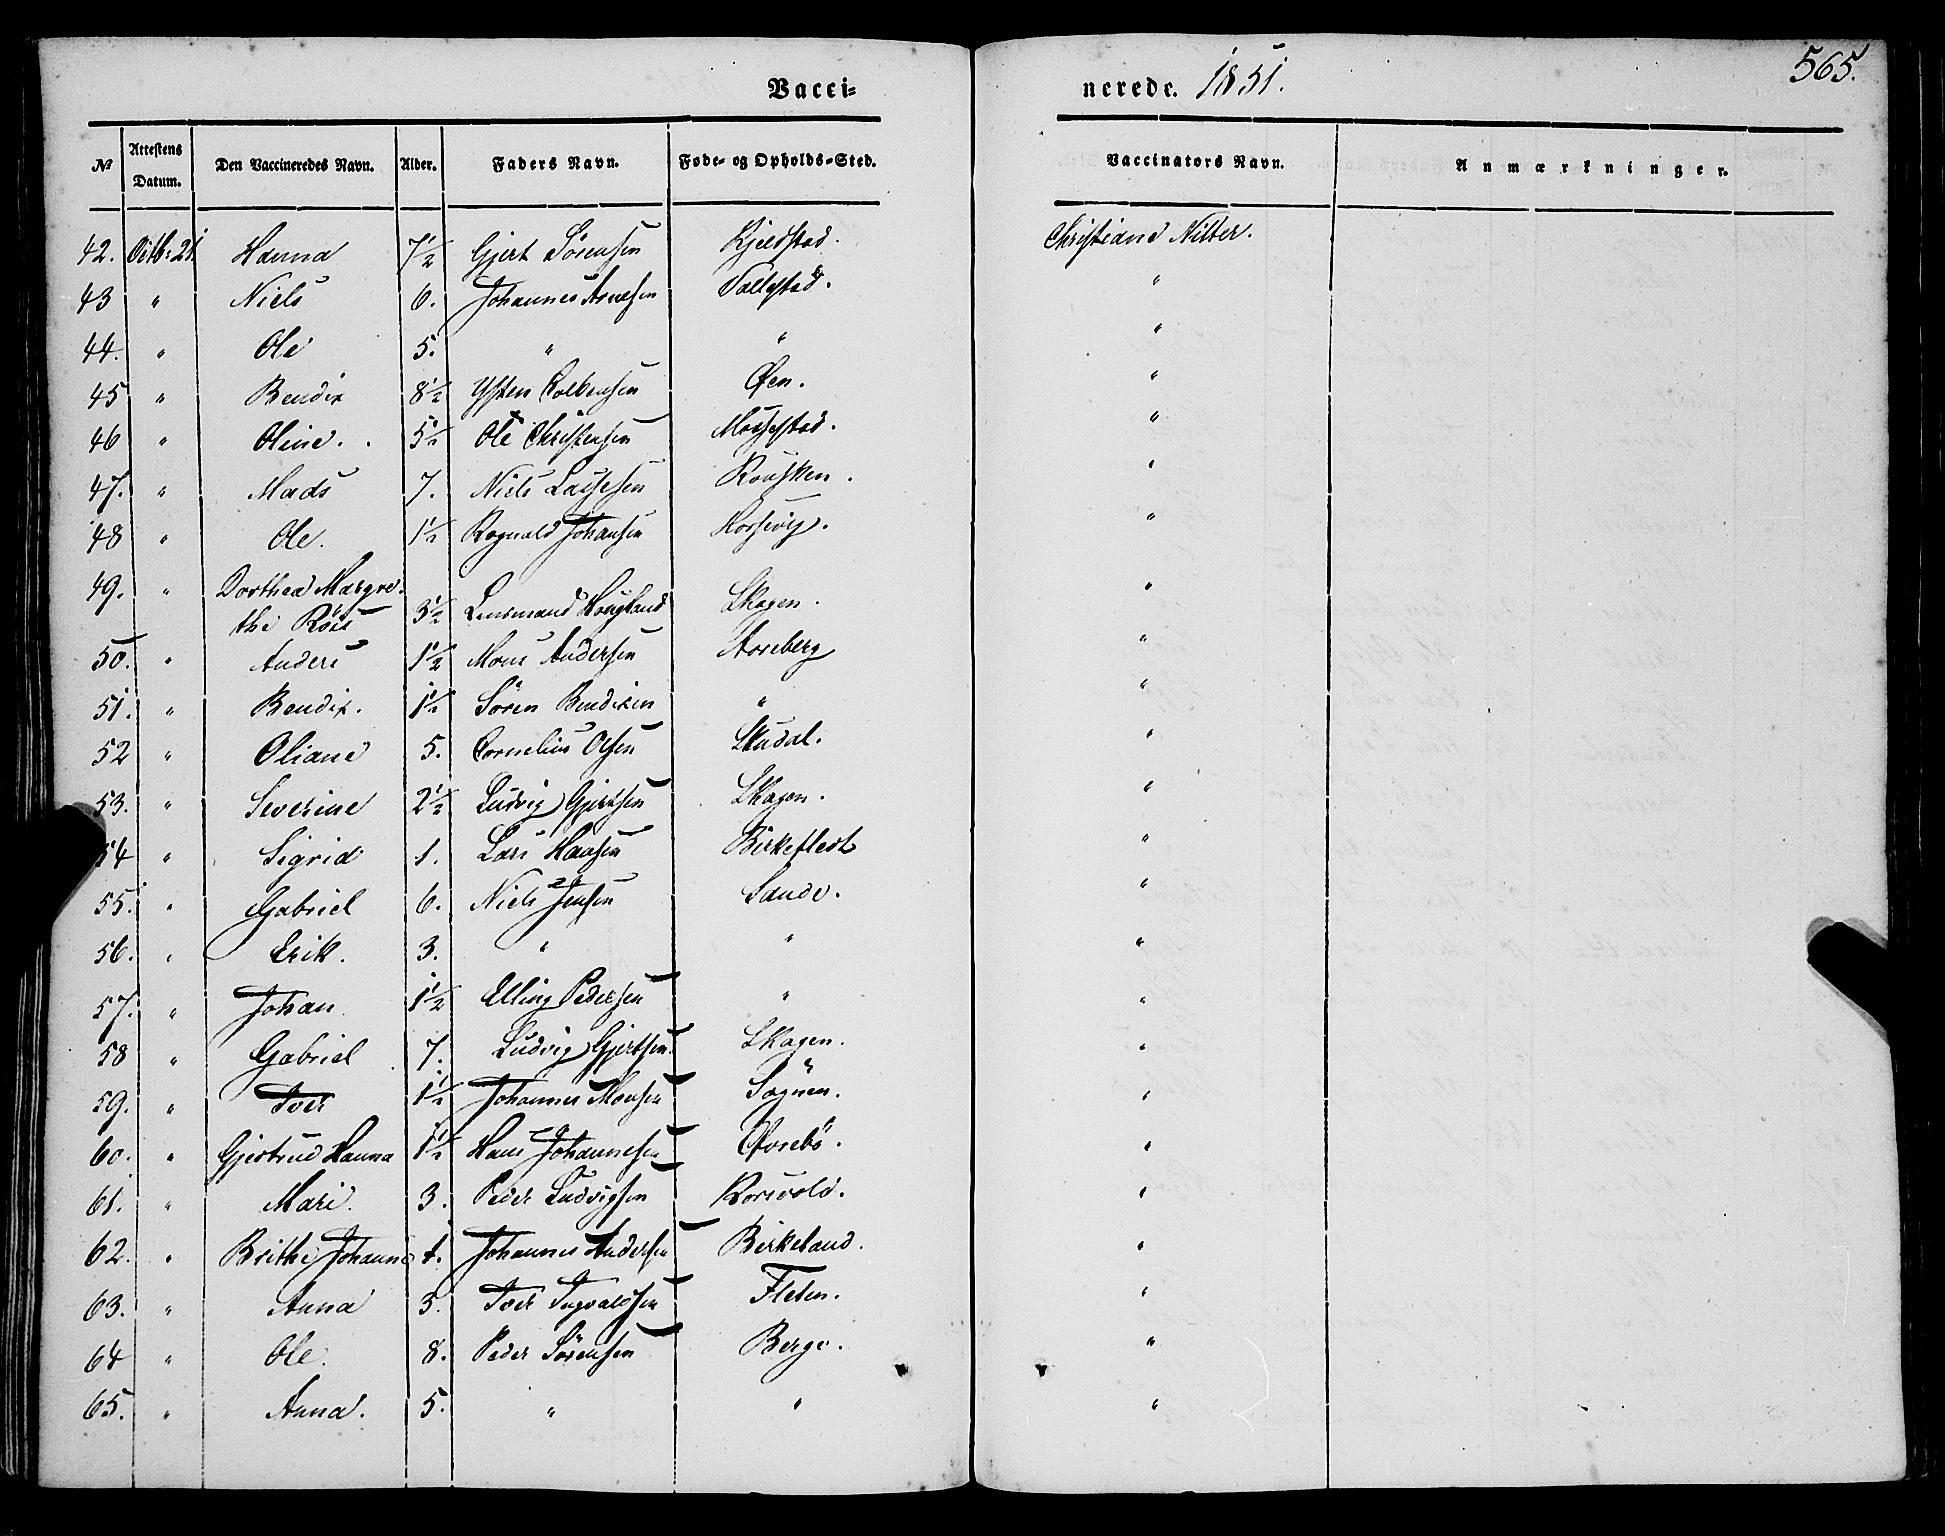 Vacci=
nerede. 1851.
565.
№ Attestens Datum. Den Vaccineredes Navn. Alder. Faders Navn. Føde- og Opholds-Sted. Vaccinators Navn. Anmærkninger.
42. Octb: 21. Hanna 7½ Gjert Sörensen Kjelstad. Christiane Nitter.
43 " Niels 6. Johannes Arnesen "
44. " Ole 5. " " "
45 " Bendix 8½ Ysten Colbensen Øen. "
46 " Oline. 5½ Ole Christensen "
47. " Mads 7. Niels Lassesen "
48 " Ole. 1½ Rognald Johansen "
49. " Dorthea Margre-
the 3½ Lensmand Hougland Skagen. "
50. " Anders 1½ Mons Andersen Aareberg "
51. " Bendix. 1½ Sören Bendixen " "
52 " Oliane 5. Cornelius Olsen "
53. " Severine 2½ Ludvig Gjertsen Skagen. "
54 " Sigrid 1. Lars Hansen Birkeflest "
55. " Gabriel 6. Niels Jensen Sande. "
56. " Erik. 3. " " "
57. " Johan 1½ Elling Pedersen " "
58 " Gabriel 7. Ludvig Gjertsen. Skagen. "
59. " Iver 1½ Johannes Monsen Sögnen. "
60. " Gjertrud Hanna 1½ Hans Johannesen Øvrebö. "
61. " Mari. 3. Peder Ludvigsen Korsvold. "
62. " Brithe Johanne 1. Johannes Andersen Birkeland. "
63. " Anna 3. Iver Ingvaldsen Fleten. "
64 " Ole. 8. Peder Sörensen Berge. "
65. " Anna. 5. " " "